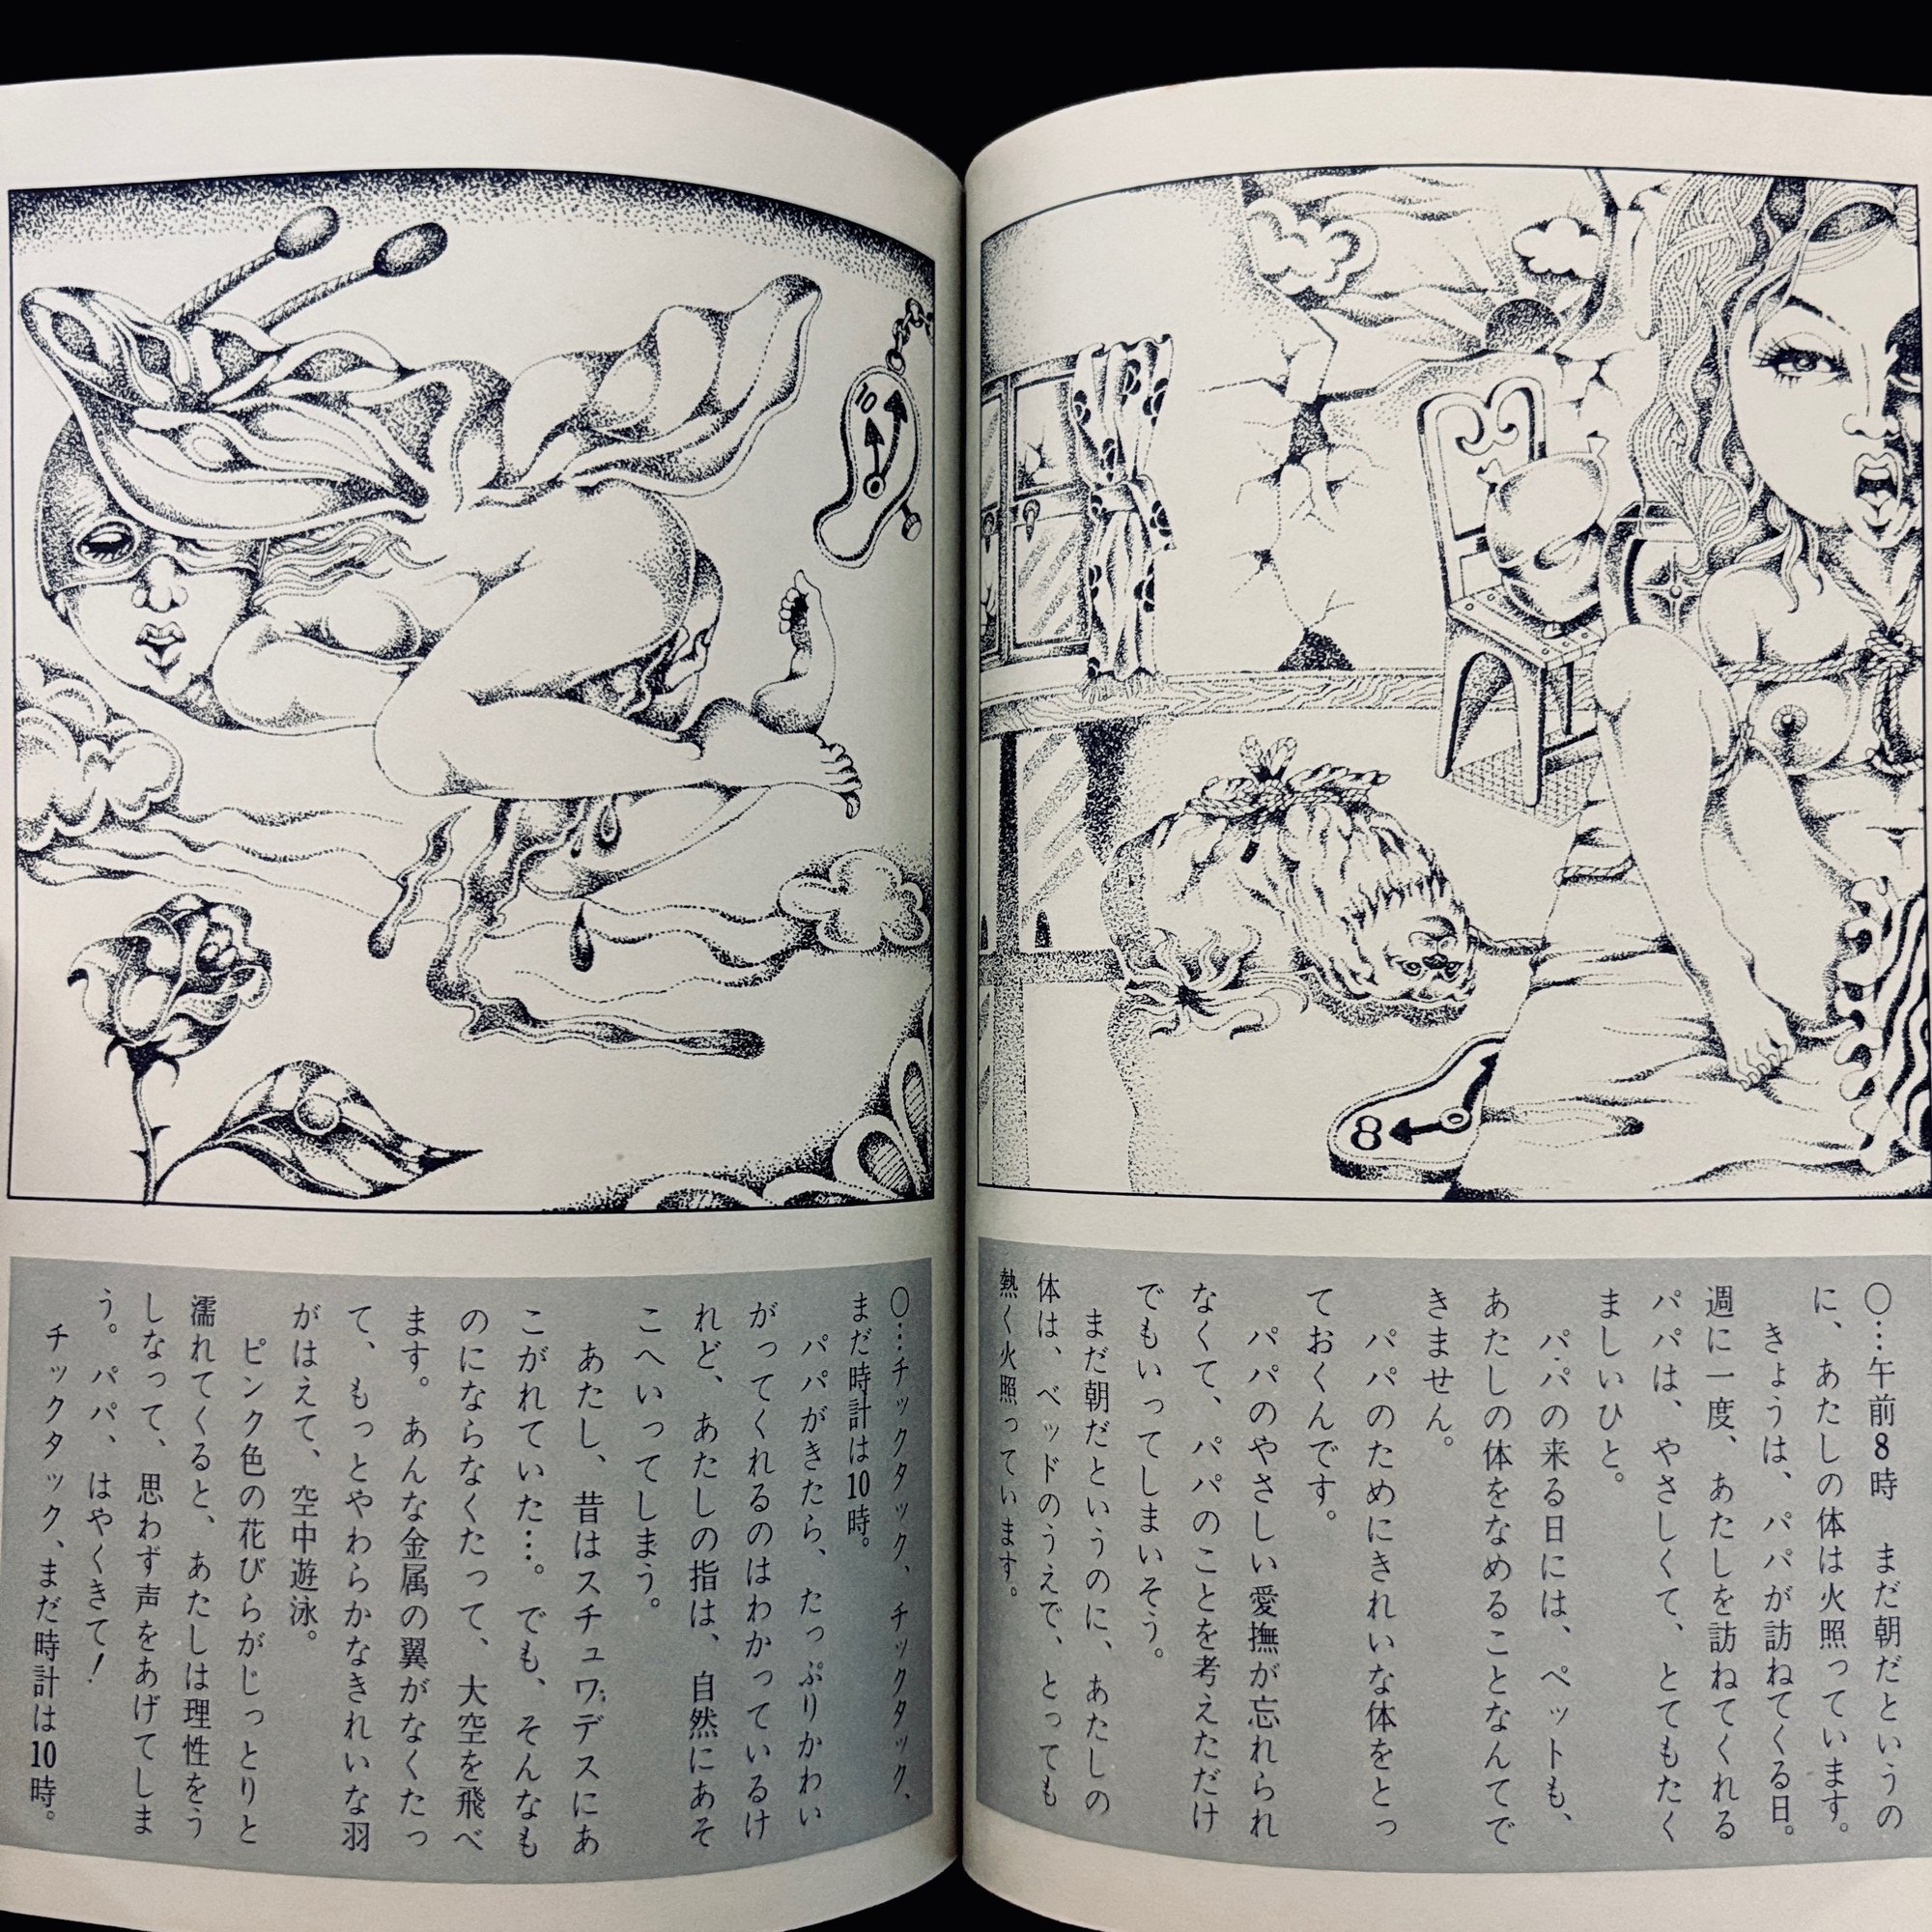 8
○…午前8時　まだ朝だというの
に、あたしの体は火照っています。
きょうは、パパが訪ねてくる日。
週に一度、あたしを訪ねてくれる
パパは、やさしくて、とてもたく
ましいひと。
パパの来る日には、ペットも、
あたしの体をなめることなんてで
きません。
パパのためにきれいな体をとっ
ておくんです。
パパのやさしい愛撫が忘れられ
なくて、パパのことを考えただけ
でもいってしまいそう。
まだ朝だというのに、あたしの
体は、ベッドのうえで、とっても
熱く火照っています。
10
○…チックタック、チックタック、
まだ時計は10時。
パパがきたら、たっぷりかわい
がってくれるのはわかっているけ
れど、あたしの指は、自然にあそ
こへいってしまう。
あたし、昔はスチュワデスにあ
こがれていた…。でも、そんなも
のにならなくたって、大空を飛べ
ます。あんな金属の翼がなくたっ
て、もっとやわらかなきれいな羽
がはえて、空中遊泳。
ピンク色の花びらがじっとりと
濡れてくると、あたしは理性をう
しなって、思わず声をあげてしま
う。パパ、はやくきて！
チックタック、まだ時計は10時。